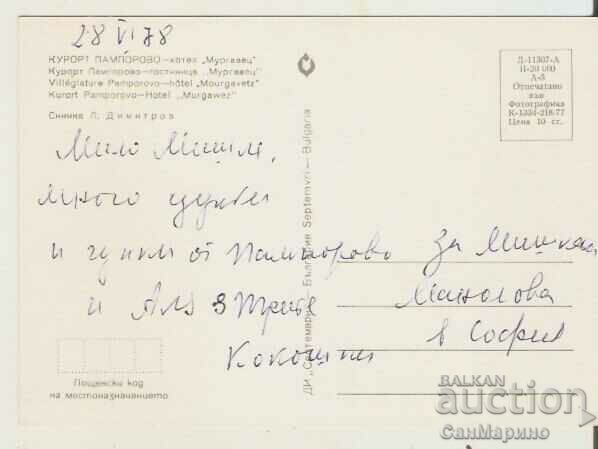 28 VI 78
КУРОРТ ПАМПОРОВО—хотел „Мургавец"
Курорт Пампорово—гостиница „Мургавец"
Villégiature Pamporovo—hôtel „Mourgavetz"
Kurort Pamporovo—Hotel „Murgawez"
Снимка Л. Димитров
Д-11307-А
П-20 000
А-5
Отпечатано
във
Фотографика
К-1334-218-77
Цена 10 ст.
Мило Мишле,
много цунки
и гушки от Пампорово
и
3 трите
Кокошки
за Мишка
Манолова
в София
ДИ „Септември"—България Septemvri—Bulgaria
Пощенски код
на местоназначението
BALKAN
auction
СанМарино